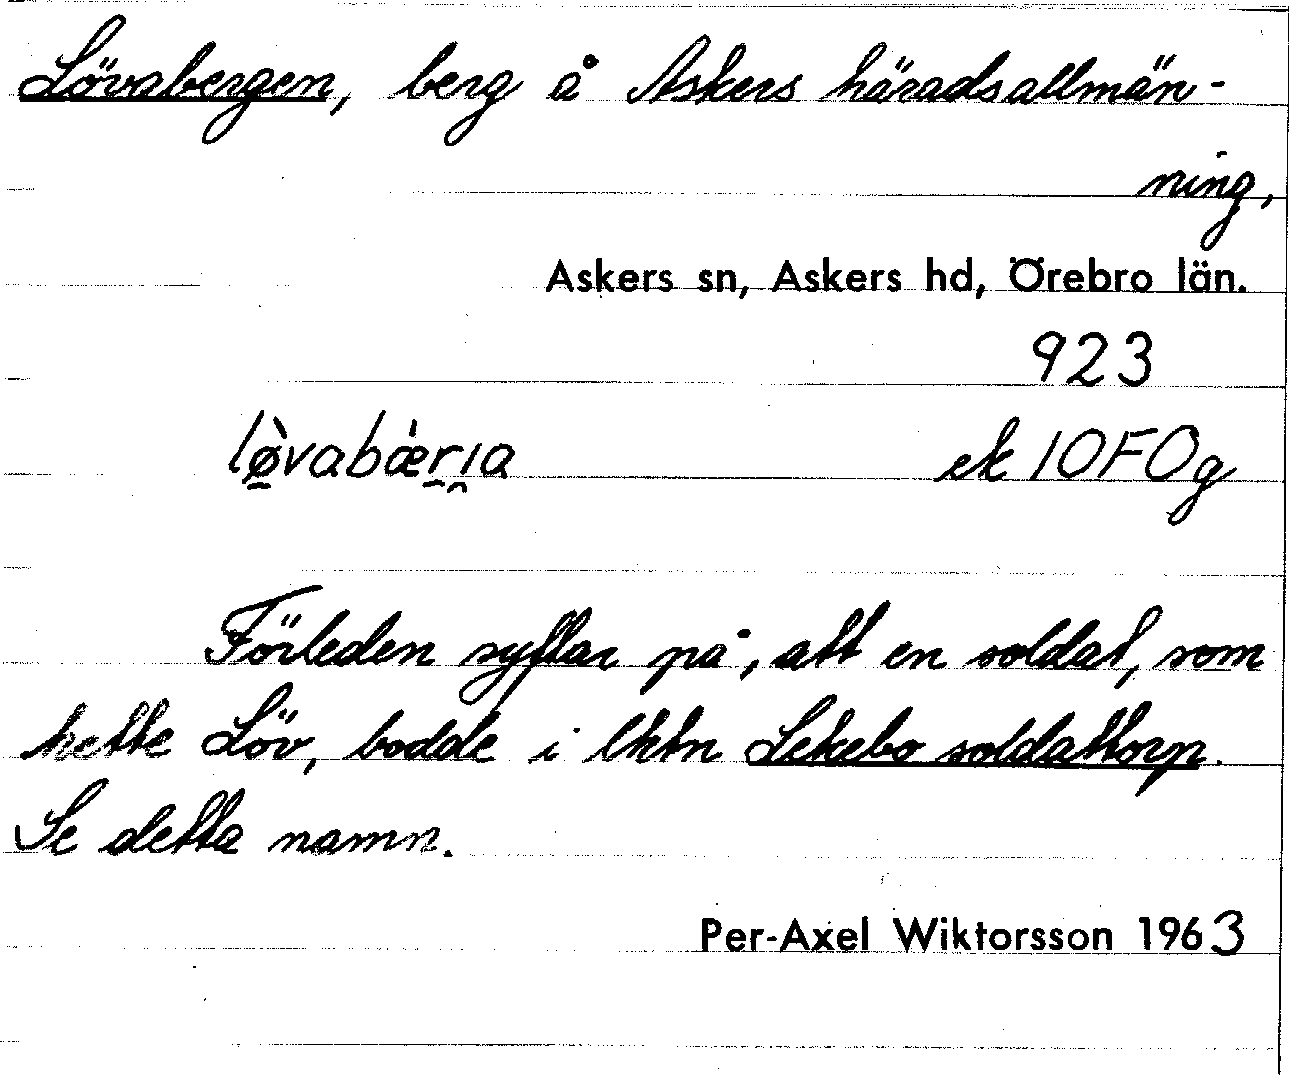 Lövabergen, berg å Askers häradsallmän-
ning,
Askers sn, Askers hd, Örebro län.
923
lø̀vabæ̀rıa
ek 10F0g
Förleden syftar på, att en soldat, som
hette Löv, bodde i lhtn Sekebo soldattorp.
Se detta namn.
Per-Axel Wiktorsson 1963